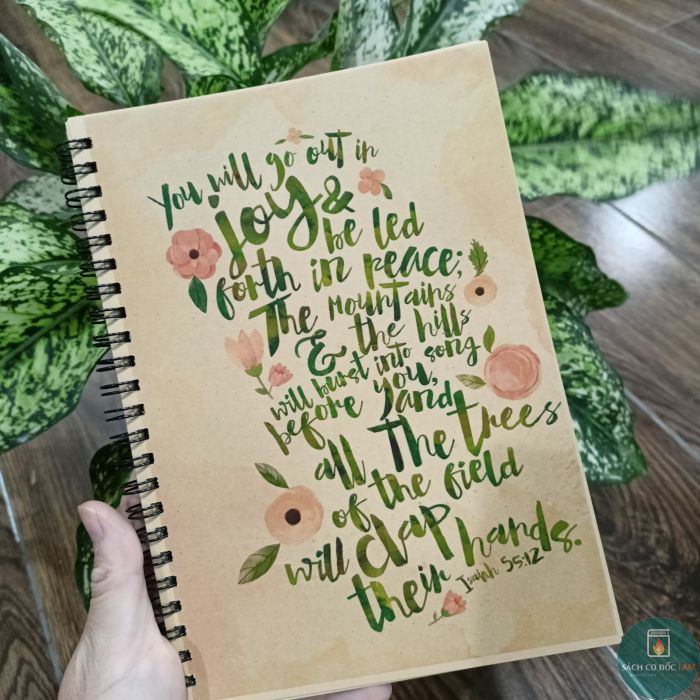 You will go out in
joy &
be led
forth in peace;
The mountains
& the hills
will burst into song
before you, and
all the trees
of the field
will clap
their hands.
Isaiah 55:12
SÁCH CƠ ĐỐC 1 AM